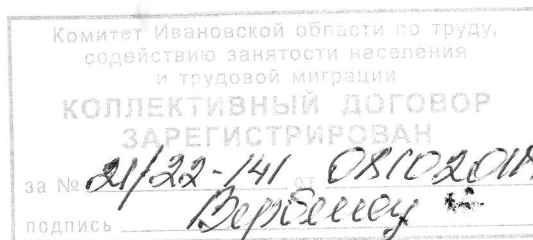 Комитет Ивановской области по труду,
содействию занятости населения
и трудовой миграции
КОЛЛЕКТИВНЫЙ ДОГОВОР
ЗАРЕГИСТРИРОВАН
за № 21/22-141 от
подпись